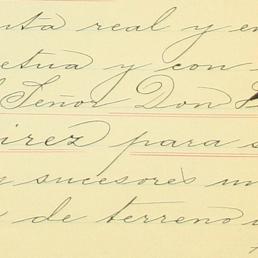 nta real y en
etua y con
Señor Don
irez para s
y sucesores un
de terreno